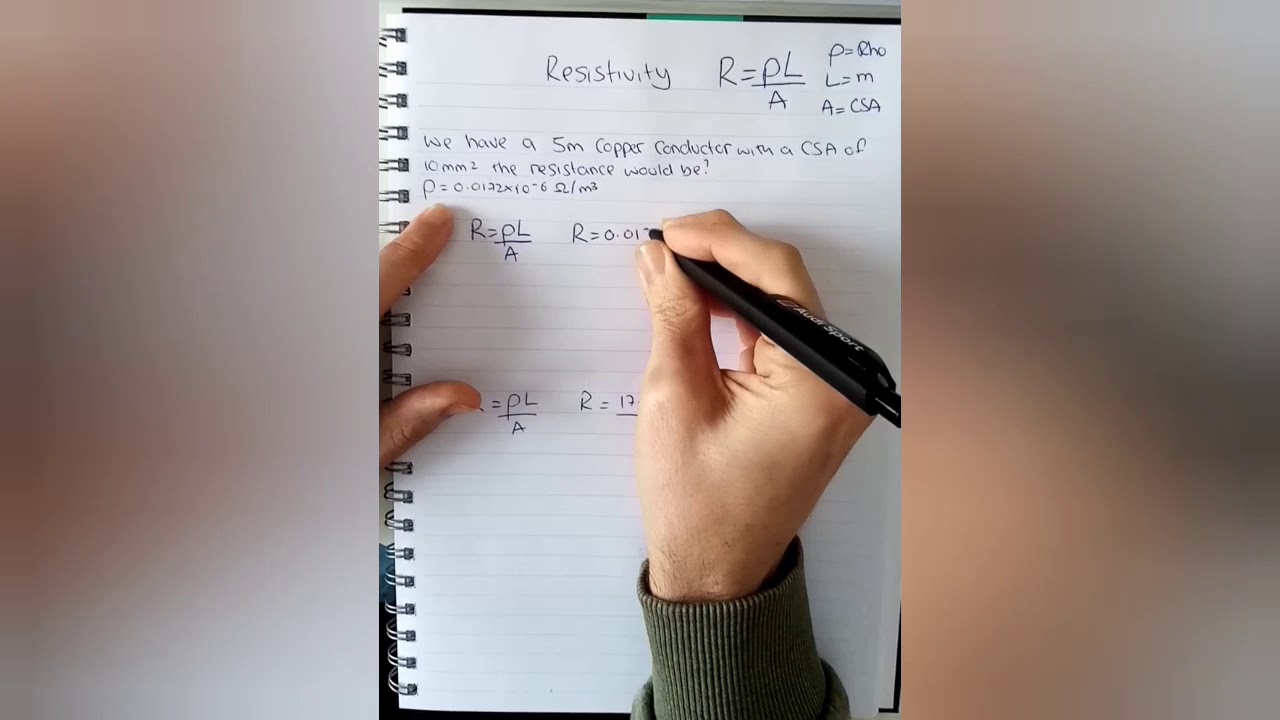 Resistivity R=ρL/A
ρ=Rho
L=m
A=CSA
We have a 5m Copper Conductor with a CSA of
10mm² the resistance would be?
ρ=0.0172×10-6 Ω/m³
R=ρL/A R=0.017
=ρL/A R=17
Audi Sport